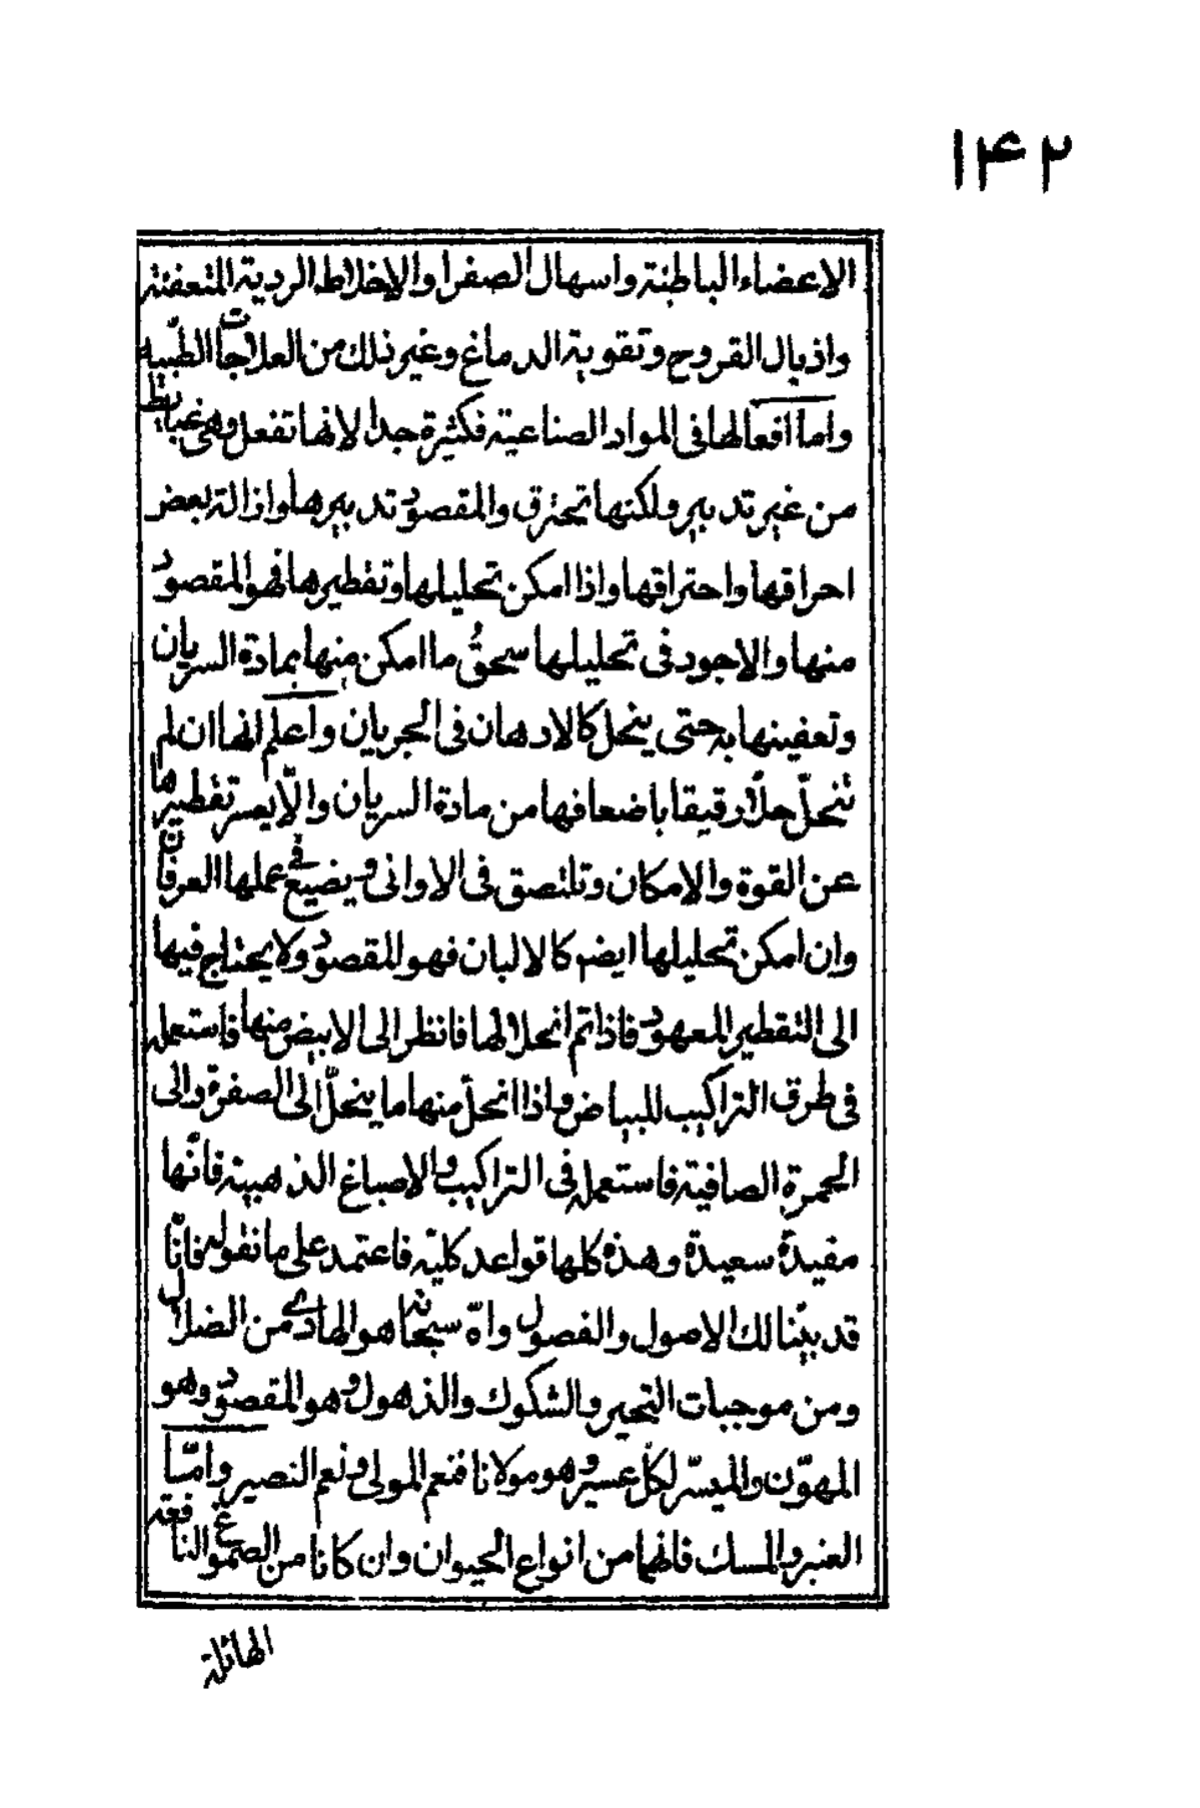 ١۴٢
الاعضاء الباطنة واسهال الصفرا والاخلاط الردية المتعفنة
واذبال القروح وتقوية الدماغ وغير ذلك من العلاجات الطبّيه
واما افعالها فى المواد الصناعية فكثيرة جدا لانها تفعل وهى غبايط
من غير تدبير ولكنها تحترق والمقصود تدبيرها وازالة بعض
احراقها واحتراقها واذا امكن تحليلها وتقطيرها فهو المقصود
منها والاجود فى تحليلها سحقُ ما امكن منها بمادة السريان
وتعفينها به حتى ينحل كالادهان فى الجريان واعلم انها ان لم
تنحلّ حلًا رقيقا باضعافها من مادة السريان والّا يعسر تقطيرها
عن القوة والامكان وتلتصق فى الاوانى ويضيع فى عملها العرفان
وان امكن تحليلها ايضم كالالبان فهو المقصود ولا يحتاج فيها
الى التقطير المعهود فاذا تم انحلالها فانظر الى الابيض منها فاستعمله
فى طرق التراكيب للبياض واذا انحلّ منها ما ينحلّ الى الصفرة والى
الحمرة الصافية فاستعمله فى التراكيب والاصباغ الذهبية فانّها
مفيدة سعيدة وهذه كلها قواعد كليّه فاعتمد على ما نقوله فانّا
قد بيّنا لك الاصول والفصول واللّه سبحانه هو الهادى من الضلال
ومن موجبات التحير والشكوك والذهول وهو المقصود وهو
المهوّن والميسّر لكل عسير وهو مولانا فنعم المولى ونعم النصير وامّا
العنبر والمسك فانهما من انواع الحيوان وان كانا من الصموغ النافعة
الهائلة